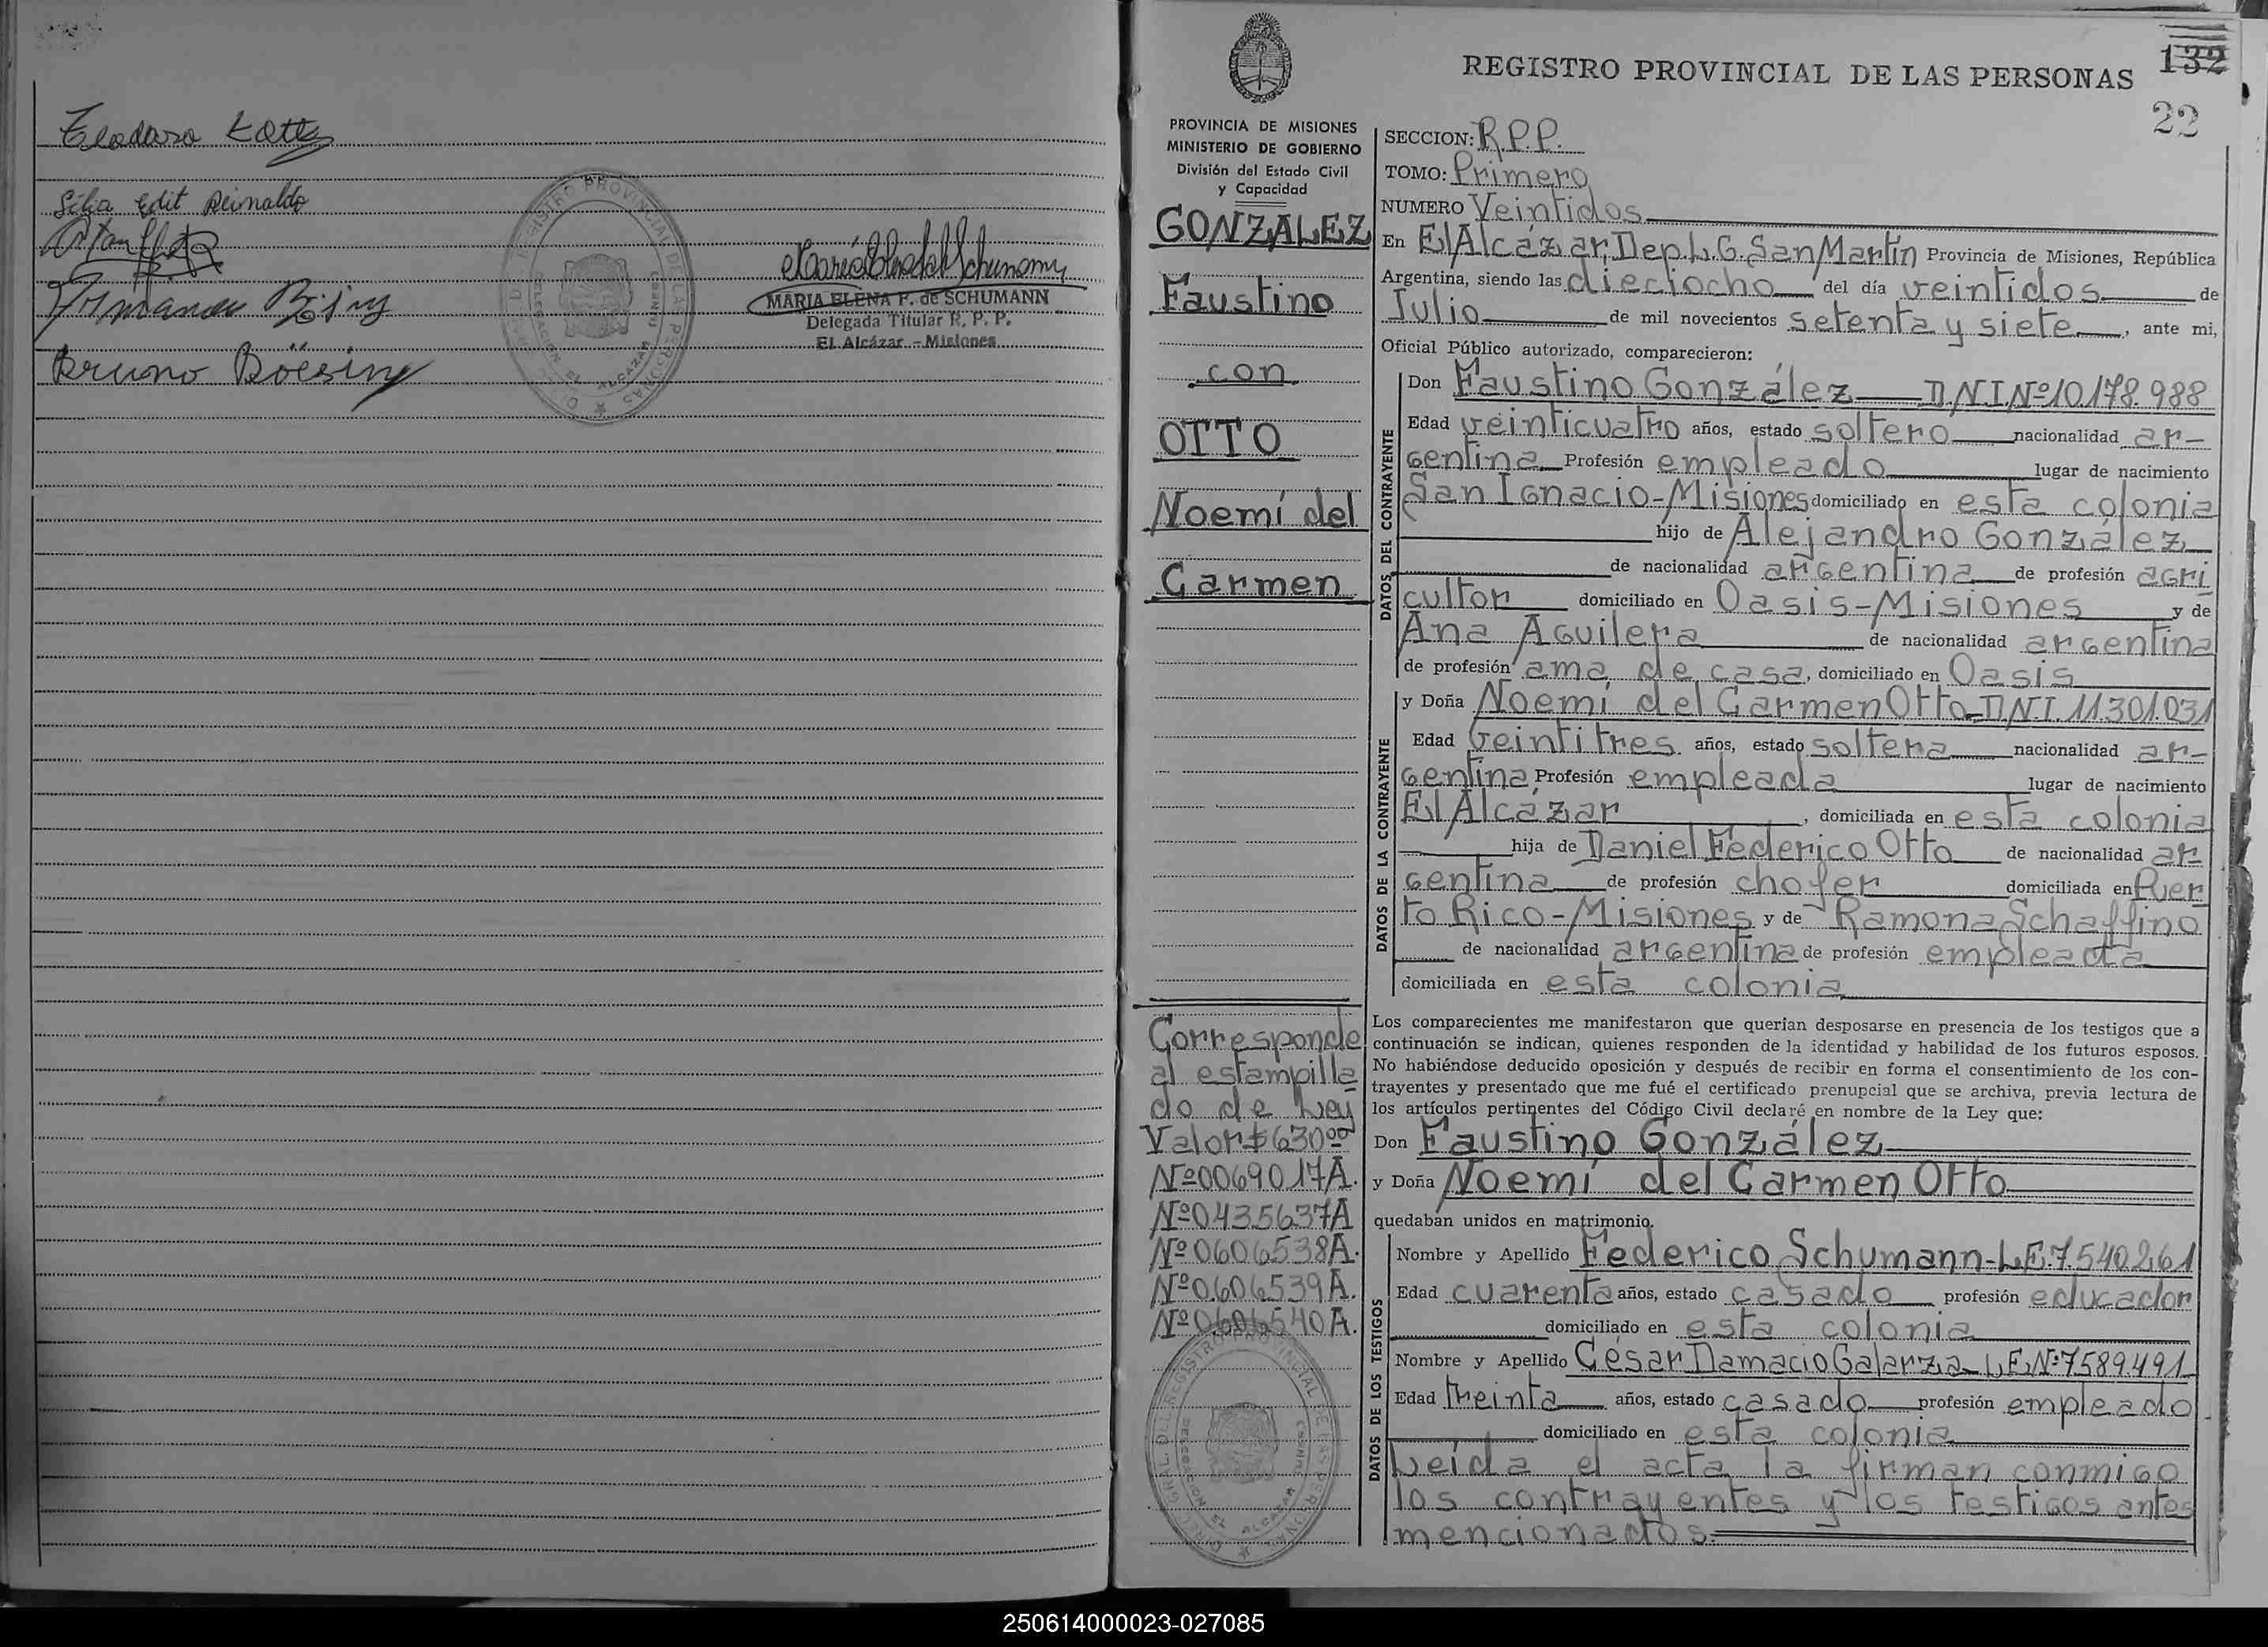 Teodoro
Silia Edit Reinaldo
Bruno Böesing
MARIA ELENA F. de SCHUMANN
Delegada Titular R. P. P.
El Alcázar - Misiones
REGISTRO PROVINCIAL DE LAS PERSONAS
132
22
PROVINCIA DE MISIONES
MINISTERIO DE GOBIERNO
División del Estado Civil
y Capacidad
GONZALEZ
Faustino
con
OTTO
Noemí del
Carmen
Corresponde
al estampilla
do de Ley
Valor $ 630,00
Nº 0069017A.
Nº 0435637A
Nº 0606538A.
Nº 0606539A.
Nº 0606540A.
SECCION: R.P.P.
TOMO: Primero
NUMERO Veintidos
En El Alcázar, Dep. L.G. San Martín Provincia de Misiones, República
Argentina, siendo las dieciocho del día veintidos de
Julio de mil novecientos setenta y siete, ante mi,
Oficial Público autorizado, comparecieron:
DATOS DEL CONTRAYENTE
Don Faustino González D.N.I. Nº 10.178.988
Edad veinticuatro años, estado soltero nacionalidad ar-
gentina Profesión empleado lugar de nacimiento
San Ignacio-Misiones domiciliado en esta colonia
hijo de Alejandro González
de nacionalidad argentina de profesión agri
cultor domiciliado en Oasis-Misiones y de
Ana Aguilera de nacionalidad argentina
de profesión ama de casa, domiciliado en Oasis
DATOS DE LA CONTRAYENTE
y Doña Noemí del Carmen Otto D.N.I. 11.301.031
Edad Veintitres años, estado soltera nacionalidad ar-
gentina Profesión empleada lugar de nacimiento
El Alcázar, domiciliada en esta colonia
hija de Daniel Federico Otto de nacionalidad ar
gentina de profesión chofer domiciliada en Puer
to Rico-Misiones y de Ramona Schaffino
de nacionalidad argentina de profesión empleada
domiciliada en esta colonia
Los comparecientes me manifestaron que querían desposarse en presencia de los testigos que a
continuación se indican, quienes responden de la identidad y habilidad de los futuros esposos.
No habiéndose deducido oposición y después de recibir en forma el consentimiento de los con-
trayentes y presentado que me fué el certificado prenupcial que se archiva, previa lectura de
los artículos pertinentes del Código Civil declaré en nombre de la Ley que:
Don Faustino González
y Doña Noemí del Carmen Otto
quedaban unidos en matrimonio.
DATOS DE LOS TESTIGOS
Nombre y Apellido Federico Schumann-L.E. 7.540.261
Edad cuarenta años, estado casado profesión educador
domiciliado en esta colonia
Nombre y Apellido César Damacio Galarza L.E. Nº 7.589.491
Edad treinta años, estado casado profesión empleado
domiciliado en esta colonia
Leída el acta la firman conmigo
los contrayentes y los testigos antes
mencionados.
250614000023-027085